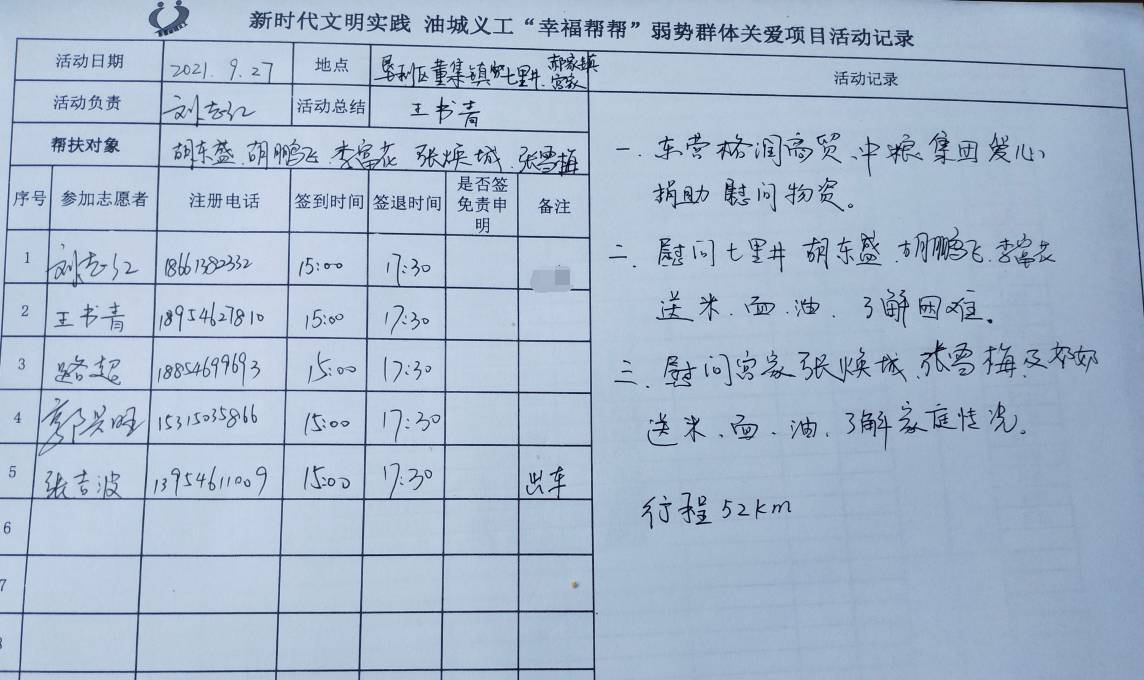 新时代文明实践 油城义工“幸福帮帮”弱势群体关爱项目活动记录
活动日期 2021.9.27 地点 垦利区董集镇 七里井.郝家镇宫家 活动记录
活动负责 刘志红 活动总结 王书青
帮扶对象 胡东盛.胡鹏飞.李富花 张焕城.张雪梅
序号 参加志愿者 注册电话 签到时间 签退时间 是否签免责申明 备注
1 刘志红 18661382332 15:00 17:30
2 王书青 18954627810 15:00 17:30
3 路超 18854699693 15:00 17:30
4 郭兴旺 15315035866 15:00 17:30
5 张吉波 13954611009 15:00 17:30 出车
6
7
一.东营格润商贸、中粮集团爱心
捐助慰问物资。
二.慰问七里井 胡东盛.胡鹏飞.李富花
送米.面.油.了解困难。
三.慰问宫家张焕城.张雪梅及奶奶
送米.面.油.了解家庭情况。
行程52km